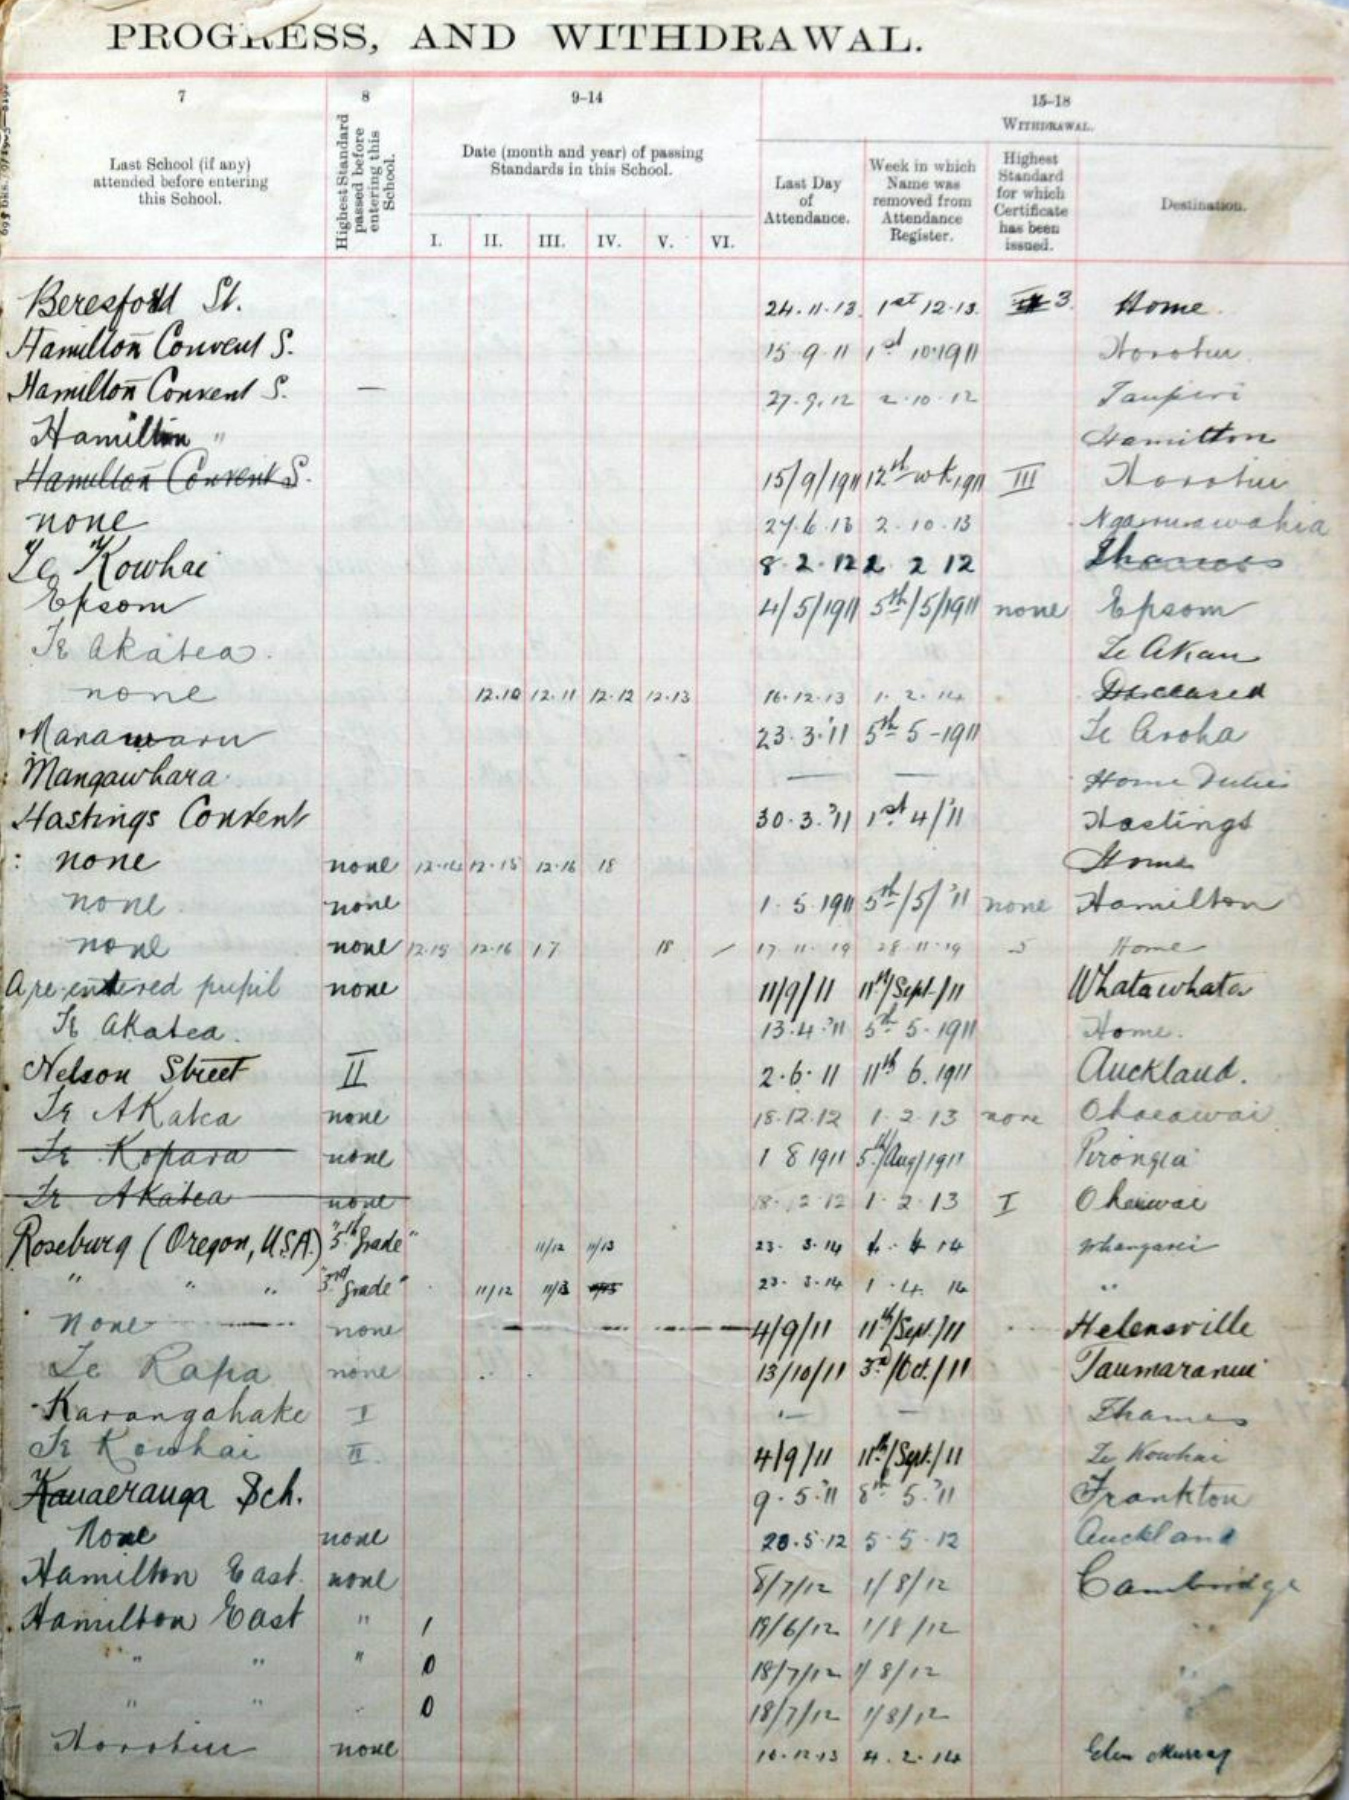 PROGRESS, AND WITHDRAWAL.
7
8
9–14
15–18
WITHDRAWAL.
Last School (if any) attended before entering this School.
Highest Standard passed before entering this School.
Date (month and year) of passing Standards in this School.
I. II. III. IV. V. VI.
Last Day of Attendance.
Week in which Name was removed from Attendance Register.
Highest Standard for which Certificate has been issued.
Destination.
Beresford St. 24.11.13 1st 12.13 3 Home.
Hamilton Convent S. 15.9.11 1st 10.1911 Horotiu
Hamilton Convent S. — 27.9.12 2.10.12 Taupiri
Hamilton " Hamilton
Hamilton Convent S. 15/9/1911 12th wk 1911 III Horotiu
none 27.6.13 2.10.13 Ngaruawahia
Te Kowhai 8.2.12 2 2 12 Thames
Epsom 4/5/1911 5th/5/1911 none Epsom
Te Akatea. Te Akau
none 12.10 12.11 12.12 12.13 16.12.13 1.2.14 Deceased
Manawaru 23.3.'11 5th 5-1911 Te Aroha
Mangawhara — — Home Duties
Hastings Convent 30.3.'11 1st 4/'11 Hastings
none none 12.14 12.15 12.16 18 Home
none none 1.5.1911 5th/5/'11 none Hamilton
none none 12.15 12.16 17 18 / 17.11.19 28.11.19 5 Home
A re-entered pupil none 11/9/11 11th/Sept/11 Whatawhata
Te Akatea. 13.4.'11 5th 5-1911 Home.
Nelson Street II 2.6.11 11th 6.1911 Auckland.
Te Akatea none 18.12.12 1.2.13 none Ohaeawai
Te Kopara none 1 8 1911 5th/Aug/1911 Pirongia
Te Akatea none 18.12.12 1.2.13 I Ohaewai
Roseburg (Oregon, USA.) "5th Grade" 11/12 11/13 23.3.14 1.4.14 Whangarei
" " " "3rd Grade" 11/12 11/13 23.3.14 1.4.14 "
None none 4/9/11 11th/Sept./11 Helensville
Te Rapa none 13/10/11 3rd/Oct./11 Taumaranui
Karangahake I — — Thames
Te Kowhai II. 4/9/11 11th/Sept./11 Te Kowhai
Kauaeranga Sch. 9.5.'11 8th 5.'11 Frankton
None none 20.5.12 5.5.12 Auckland
Hamilton East. none 8/7/12 1/8/12 Cambridge
Hamilton East " 1 19/6/12 1/8/12 "
" " " 0 18/7/12 1/8/12 "
" " " 0 18/7/12 1/8/12 "
Horotiu none 16.12.13 4.2.14 Glen Murray